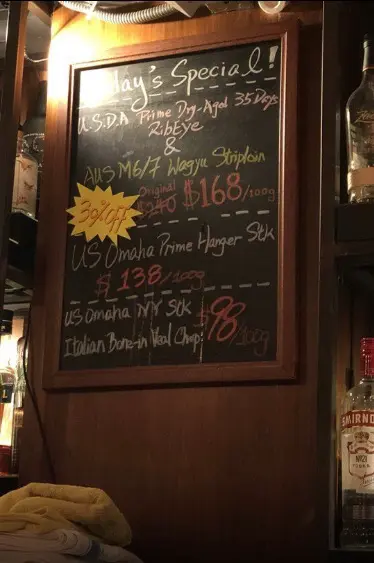 Today's Special!
U.S.D.A Prime Dry-Aged 35 Days
RibEye
&
AUS M6/7 Wagyu Striploin
30% OFF
Original
$240 $168/100g
US Omaha Prime Hanger Stk
$138/100g
US Omaha NY Stk
Italian Bone-in Veal Chop:
$98/100g
SMIRNO
No21
VODKA